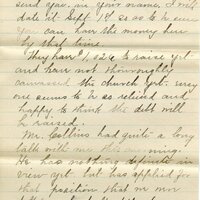 send you, in your name, I will
date it Sept. 18 so as to be sure
you can have the money here
by that time.
They have $1,026 to raise yet
and have not thoroughly
canvassed the church yet. Every
one seems to be so relieved and
happy to think the debt will
be raised.
Mr. Collins had quite a long
talk with me this morning.
He has nothing definite in
view yet but has applied for
that position that in